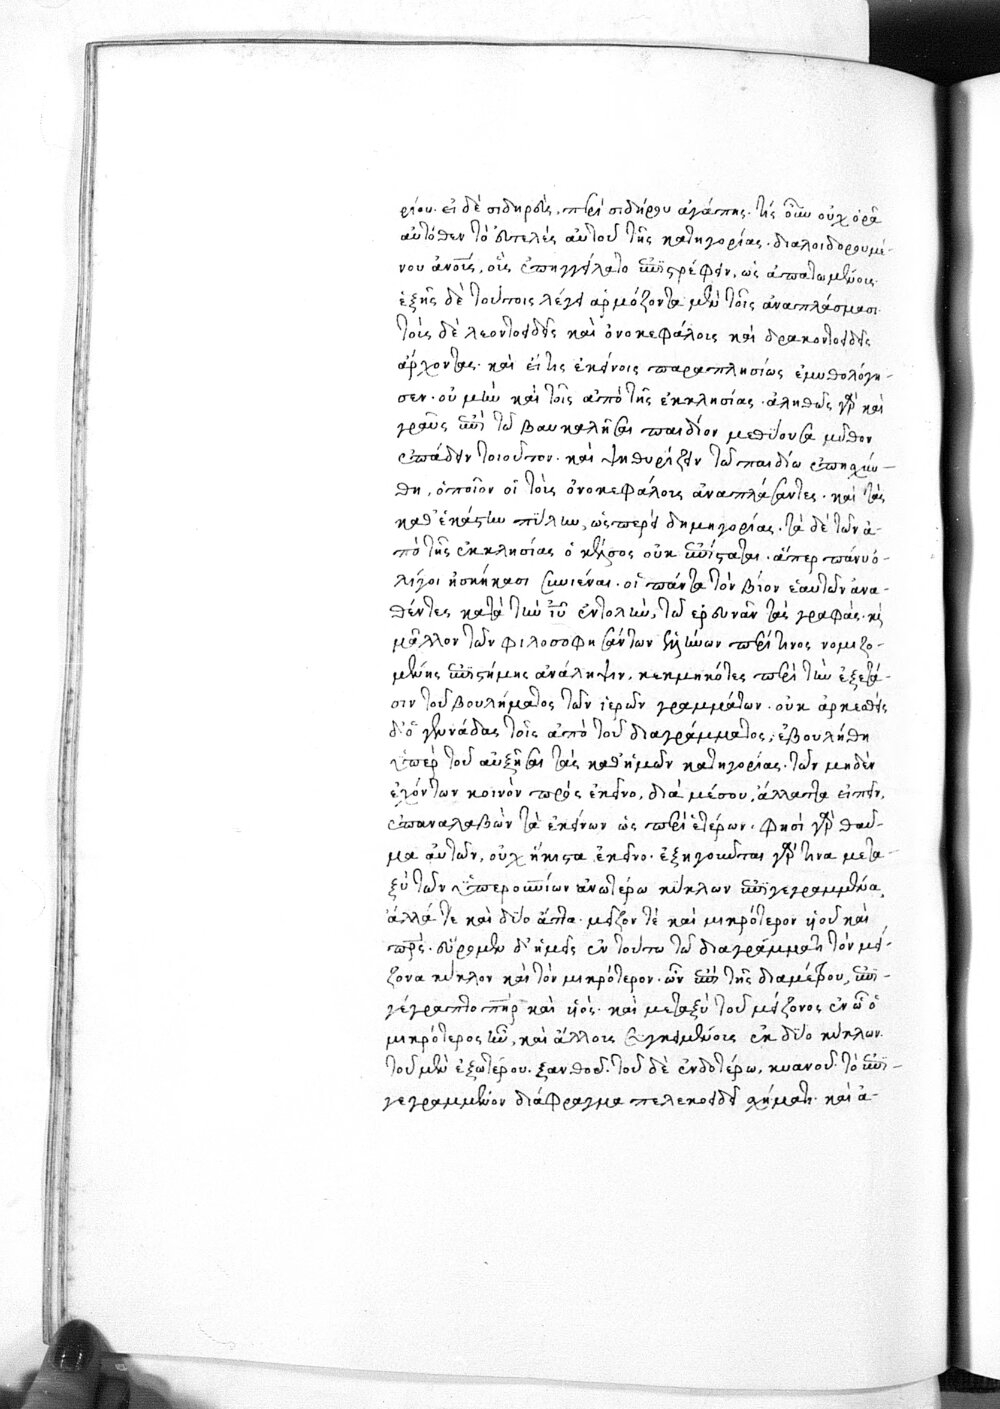 ρίου· εἰ δὲ σιδηρεὺς, περὶ σιδήρου ἀγάπης· τίς οὖν οὐχ ὁρᾶ
αὐτόθεν τὸ εὐτελὲς αὐτοῦ τῆς κατηγορίας· διαλοιδορουμέ-
νου ἀνοις, οὓς ἐπηγγείλατο ἐπιστρέφειν, ὡς ἀπατωμένοις
ἑξῆς δὲ τούτοις λέγει ἁρμόζοντα μὲν τοῖς ἀναπλάσμασι
τοῖς δὲ λεοντοειδεῖς καὶ ὀνοκεφάλοις καὶ δρακοντοειδεῖς
ἄρχοντας· καὶ εἴ τις ἐκείνοις παραπλησίως ἐμυθολόγη-
σεν· οὐ μὴν καὶ τοῖς ἀπὸ τῆς ἐκκλησίας· ἀληθῶς γὰρ καὶ
γραῦς ἐπὶ τῶ βαυκαλῆσαι παιδίον μεθύουσα μῦθον
ἐπάδειν τοιοῦτον· καὶ ψιθυρίζειν τῶ παιδίω ἐπηχύν-
θη, ὁποῖον οἱ τοὺς ὀνοκεφάλοις ἀναπλάσαντες· καὶ τὰς
καθ' ἑκάστην πύλην, ὡσπερεὶ δημηγορίας· τὰ δὲ τῶν ἀ-
πὸ τῆς ἐκκλησίας ὁ κέλσος οὐκ ἐπίσταται· ἅπερ πάνυ ὀ-
λίγοι ἠσκήκασι συνιέναι· οἱ πάντα τὸν βίον ἑαυτῶν ἀνα-
θέντες κατὰ τὴν ιυ ἐντολὴν, τῶ ἐρευνᾶν τὰς γραφάς· κὶ
μᾶλλον τῶν φιλοσοφησάντων ἑλλήνων περὶ τινος νομιζο-
μένης ἐπιστήμης ἀνάληψιν, κεκμηκότες περὶ τὴν ἐξετα-
σιν τοῦ βουλήματος τῶν ἱερῶν γραμμάτων· οὐκ ἀρκεσθεὶς
δ' ὁ γεννάδας τοῖς ἀπὸ τοῦ διαγράμματος, ἐβουλήθη
ὑπὲρ τοῦ αὐξῆσαι τὰς καθ' ἡμῶν κατηγορίας· τῶν μηδὲν
ἐχόντων κοινὸν πρὸς ἐκεῖνο, διὰ μέσου, ἄλλαττα εἰπεῖν,
ἐπαναλαβὼν τὰ ἐκείνων ὡς περὶ ἑτέρων· φησὶ γὰρ θαῦ-
μα αὐτῶν, οὐχ ἥκιστα ἐκεῖνο· ἐξηγοῦνται γὰρ τινα μετα-
ξὺ τῶν ὑπερουνίων ἀνωτέρω κύκλων ἐπιγεγραμμένα,
ἄλλά τε καὶ δύο ἄττα· μεῖζον τὲ καὶ μικρότερον υἱοῦ καὶ
πρς· εὕρομεν δ' ἡμεῖς ἐν τούτω τῶ διαγράμματι τὸν μεί-
ζονα κύκλον καὶ τὸν μικρότερον· ὧν ἐπὶ τῆς διαμέτρου, ἐπι-
γέγραπτο πηρ καὶ υἱός· καὶ μεταξὺ τοῦ μείζονος ἐν ὧ ὁ
μικρότερος ἦν, καὶ ἄλλοις συγκειμένοις ἐκ δύο κύκλων
τοῦ μὲν ἐξωτέρου· ξανθοῦ· τοῦ δὲ ἐνδοτέρω, κυανοῦ· τὸ ἐπι-
γεγραμμένον διάφραγμα πελεκοειδεῖ σχήματι· καὶ ἀ-